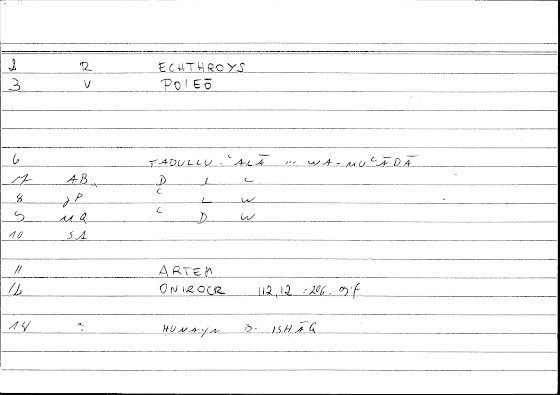 1 R ECHTHROYS
3 V POIEŌ
6 TADULLU ʿALĀ ... WA-MUʿĀDĀ
7 AB D L L
8 JP ʿ L W
9 MQ ʿ D W
10 SA
11 ARTEM
1b ONIROCR 112,12 = 206.
14 HUNAYN B. ISHĀQ